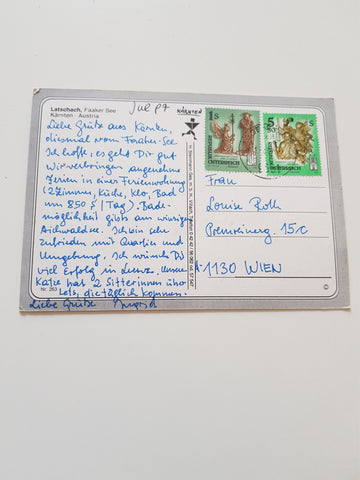 Latschach, Faaker See
Kärnten · Austria
Jul 97
KÄRNTEN
Liebe Grüße aus Kärnten,
diesmal vom Faaker-See
Ich hoffe, es geht Dir gut
Wir verbringen angenehme
Ferien in einer Ferienwohnung
(2 Zimmer, Küche, Klo, Bad
um 850 S / Tag). Bade-
möglichkeit gibts am winzigen
Aichwaldsee. Ich bin sehr
zufrieden mit Quartier und
Umgebung. Ich wünsche Dir
viel Erfolg in Lienz. Unsere
Katze hat 2 Sitterinnen übr.
Lets, die täglich kommen.
Liebe Grüße Ingrid
Nr. 263
1 S
REPUBLIK
ÖSTERREICH
5 50 S
REPUBLIK
ÖSTERREICH
Frau
Louise Roth
Premreinerg. 15c
A-1130 WIEN
©